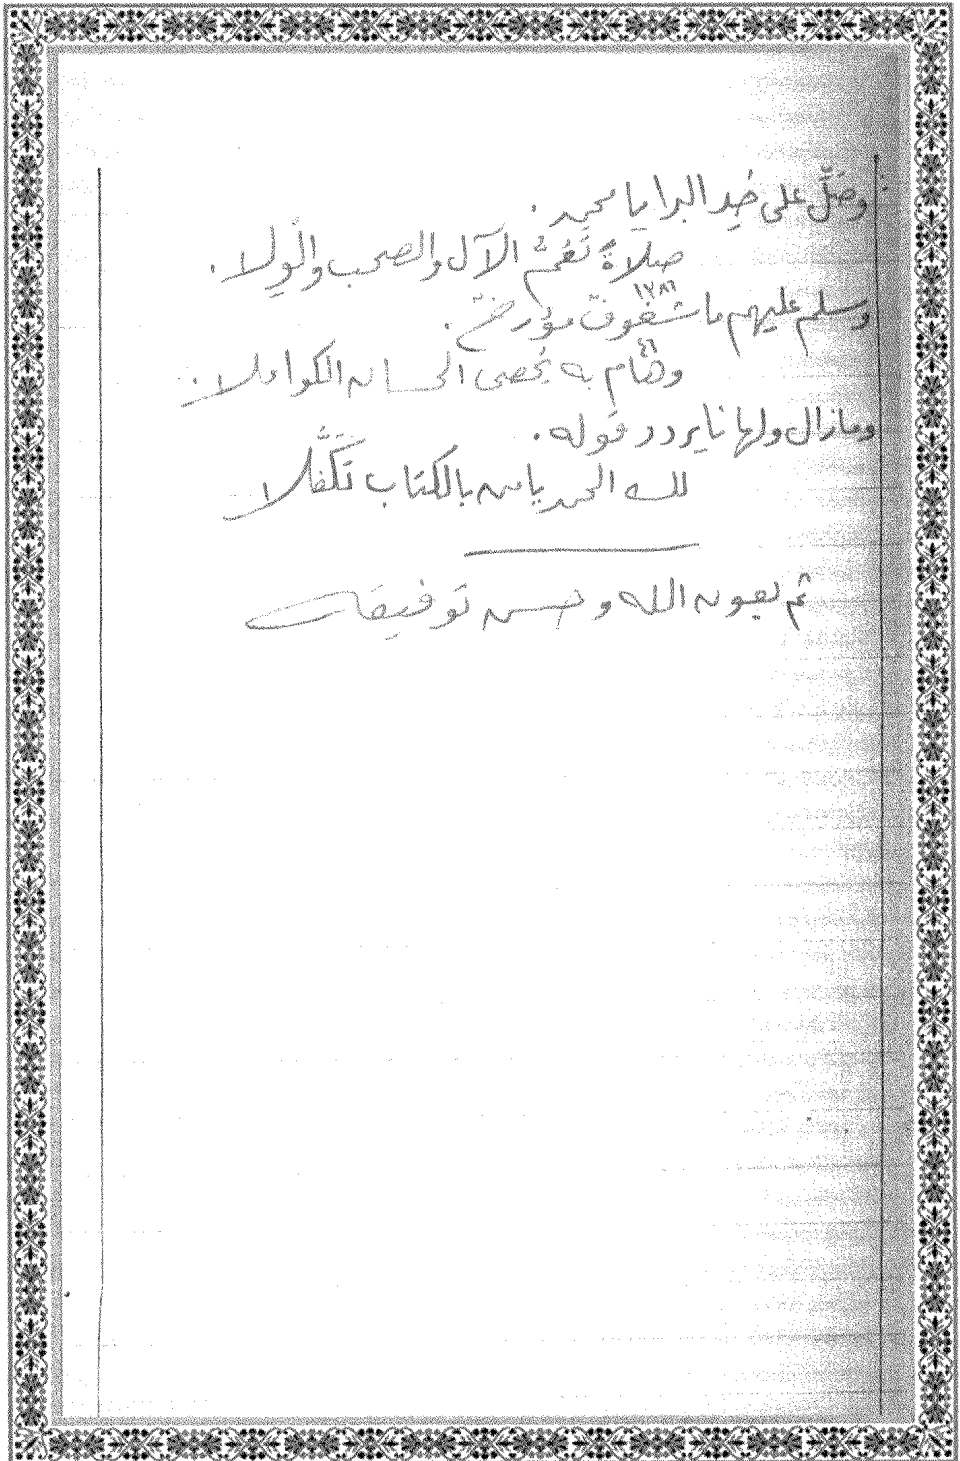 وصَلِّ على خير البرايا محمد .
صلاةً تَعُمُّ الآل والصحب والولا .
وسلم عليهم ما شغوف مؤرخ .
١٢٨٦
وهام به يحصى الحسان الكواملا .
٤٦
وما زال ولهانا يردد قوله .
لك الحمد يا من بالكتاب تَكَفَّلا
تم بعون الله وحسن توفيقه